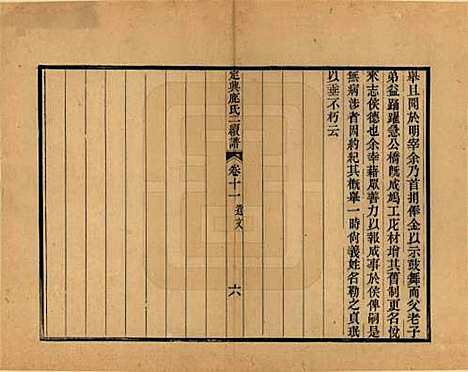 舉且聞於明宰余乃首捐俸金以示鼓舞而父老子
弟益踴躍急公橋既成鳩工庀材增其舊制更名倪
來志侯德也余幸藉眾善力以報成事於侯俾嗣是
無病涉者因約紀其概舉一時尚義姓名勒之貞珉
以垂不朽云
定興鹿氏二續譜
卷十一 遺文
六